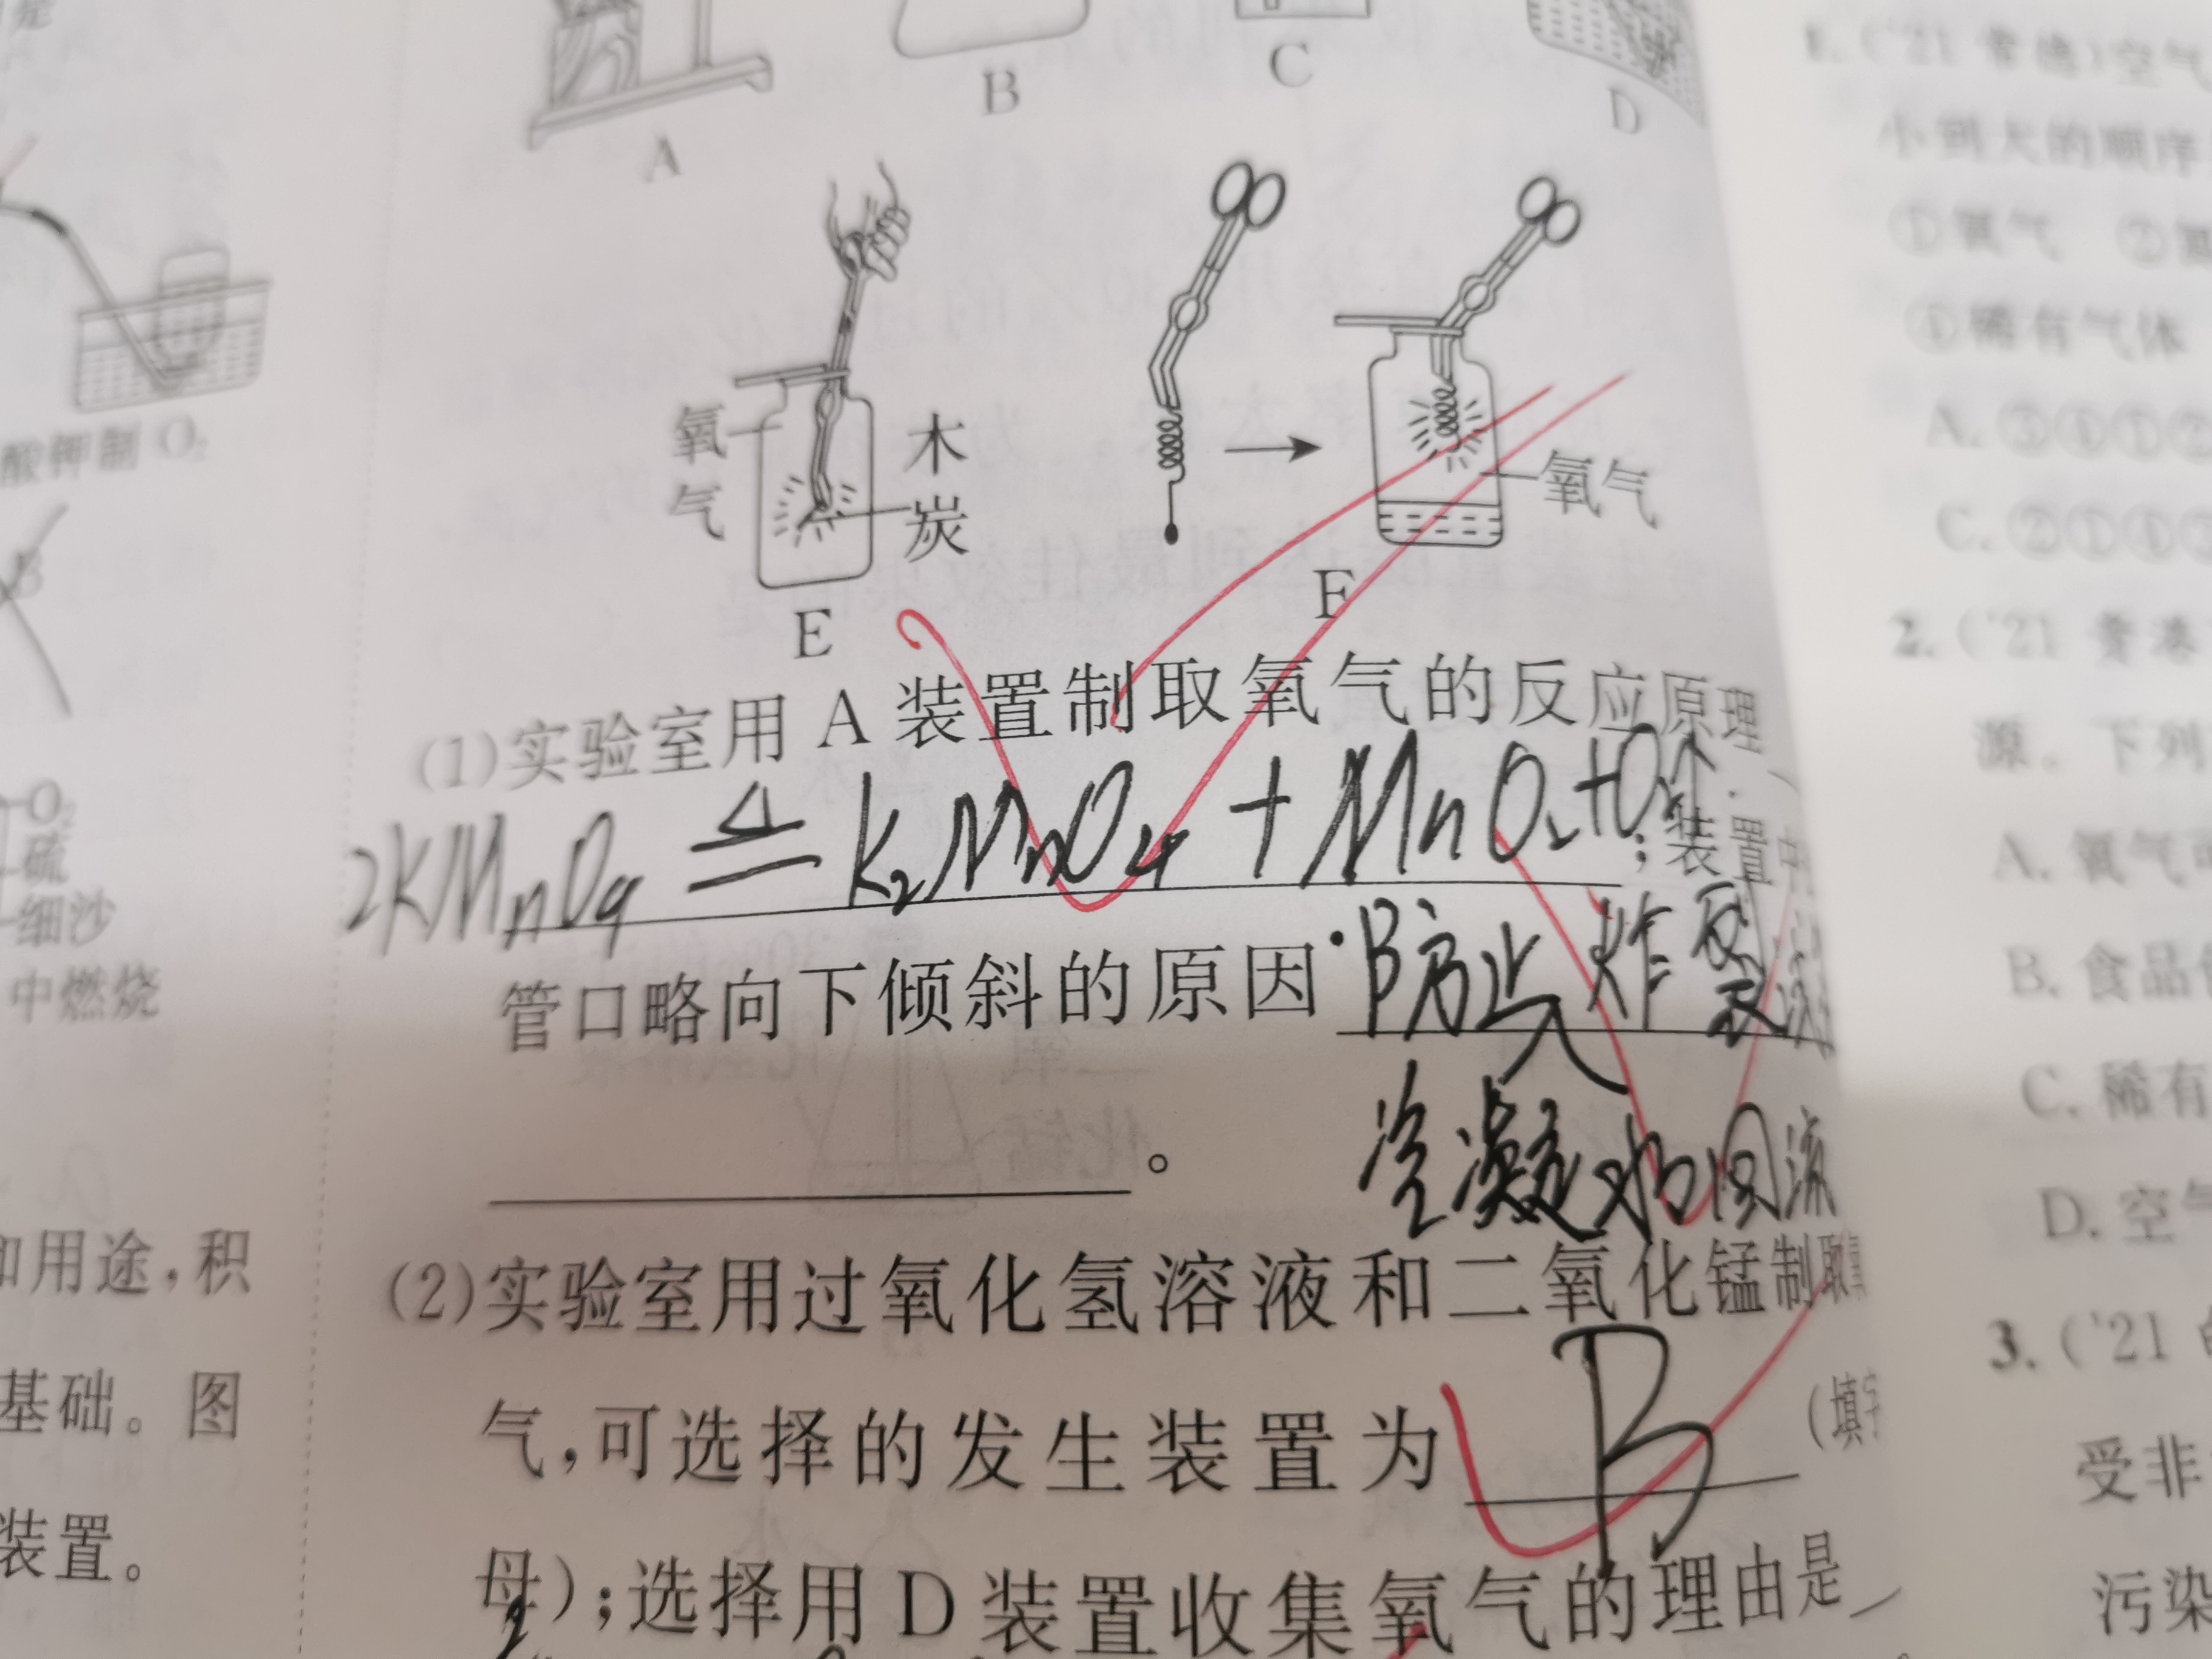 A
B
C
D
氧
气
木
炭
E
氧气
F
(1)实验室用 A 装置制取氧气的反应原理
2KMnO4 ≜ K2MnO4 + MnO2+O2↑ ;装置中
管口略向下倾斜的原因 防止 炸裂
冷凝水回流
。
(2)实验室用过氧化氢溶液和二氧化锰制取氧
气,可选择的发生装置为 B (填字
母);选择用 D 装置收集氧气的理由是
酸钾制 O2
B
O2
硫
细沙
中燃烧
和用途,积
基础。图
装置。
1. ('21 常德)空气
小到大的顺序
①氧气 ②氮
④稀有气体
A. ③④①②
C. ②①④③
2. ('21 贵港
源。下列
A. 氧气可
B. 食品
C. 稀有
D. 空气
3. ('21
受非
污染